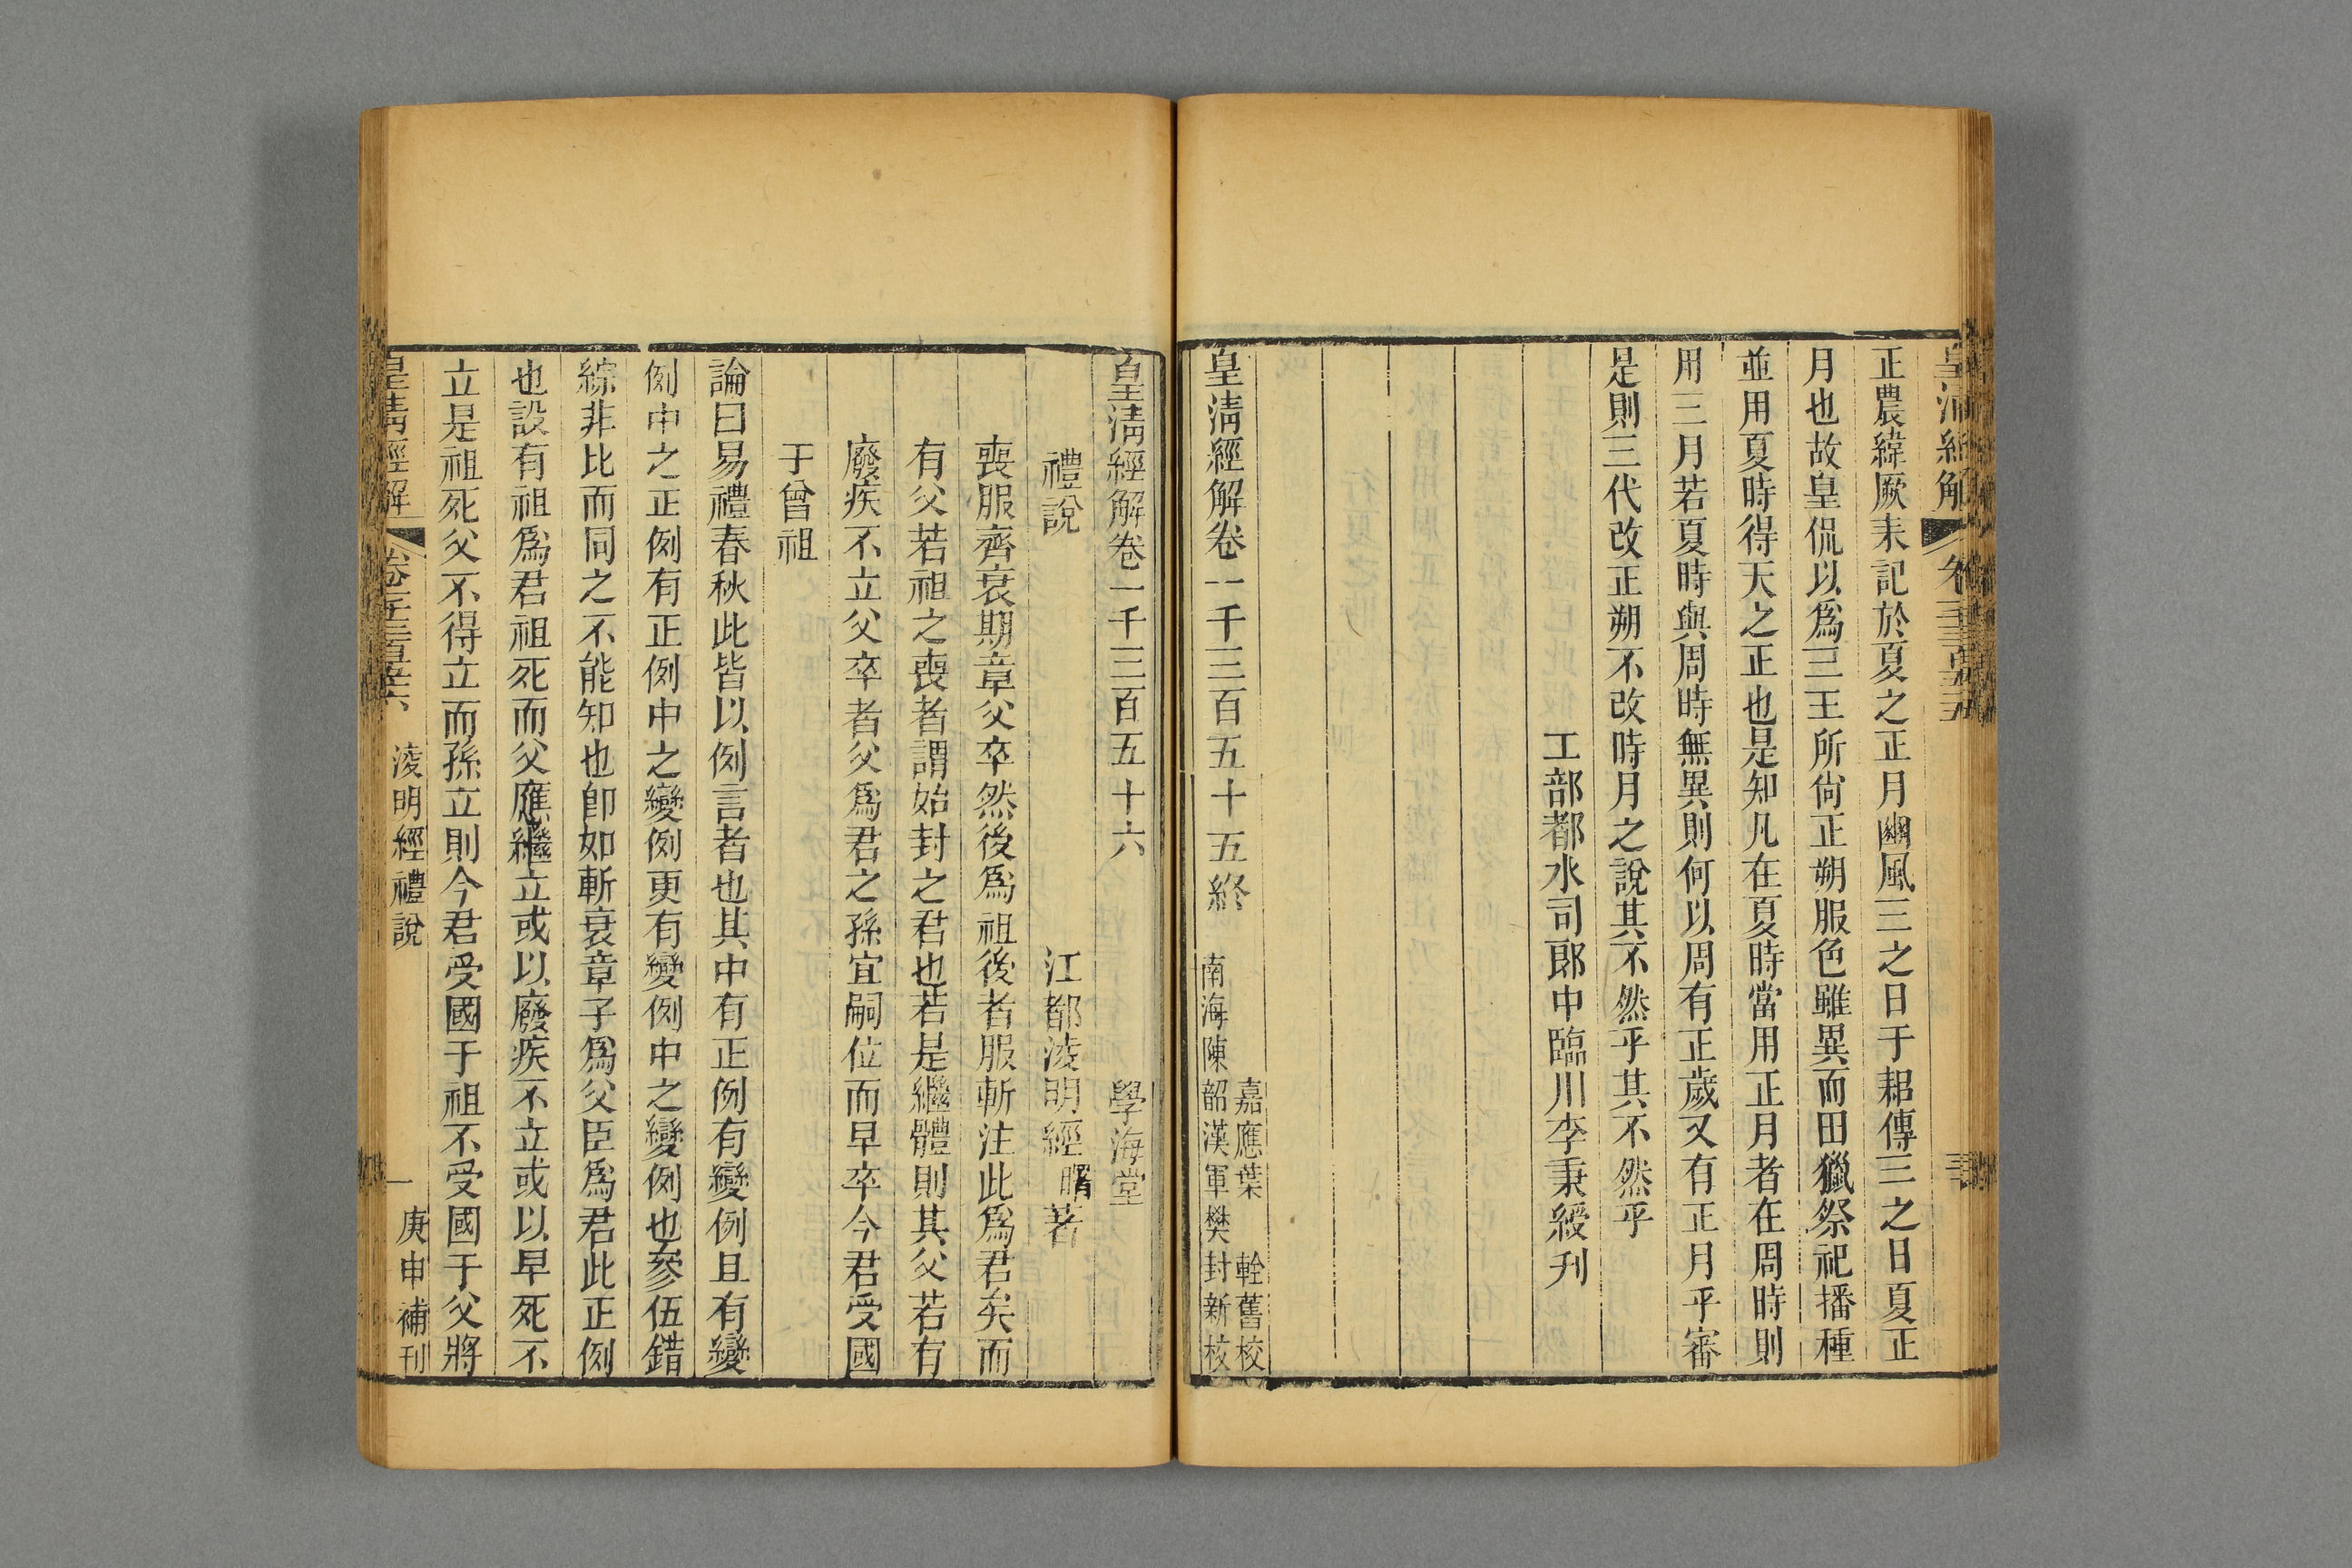 皇清經解
正農緯厥耒記於夏之正月豳風三之日于耜傳三之日夏正
月也故皇侃以爲三王所尙正朔服色雖異而田獵祭祀播種
並用夏時得天之正也是知凡在夏時當用正月者在周時則
用三月若夏時與周時無異則何以周有正歲又有正月乎審
是則三代改正朔不改時月之說其不然乎其不然乎
工部都水司郎中臨川李秉綬刋
皇淸經解卷一千三百五十五終
嘉應葉 輇舊校
南海陳韶漢軍樊封新校
皇淸經解卷一千三百五十六
學海堂
禮說
江都淩明經曙著
喪服齊衰期章父卒然後爲祖後者服斬注此爲君矣而
有父若祖之喪者謂始封之君也若是繼體則其父若有
廢疾不立父卒者父爲君之孫宜嗣位而早卒今君受國
于曾祖
論曰易禮春秋此皆以例言者也其中有正例有變例且有變
例中之正例有正例中之變例更有變例中之變例也參伍錯
綜非比而同之不能知也卽如斬衰章子爲父臣爲君此正例
也設有祖爲君祖死而父應繼立或以廢疾不立或以早死不
立是祖死父不得立而孫立則今君受國于祖不受國于父將
皇淸經解
卷一千三百五十六
淩明經禮說
一
庚申補刋